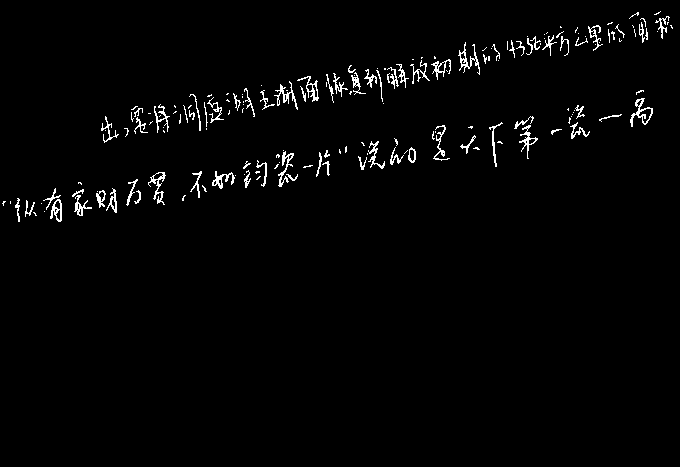 出,要将洞庭湖主湖面恢复到解放初期的4350平方公里的面积
“纵有家财万贯,不如钧瓷一片”说的是天下第一瓷一高